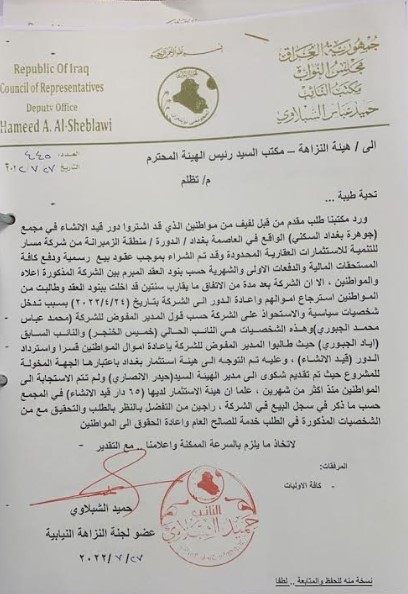 بسم الله الرحمن الرحيم
Republic Of Iraq
Council of Representatives
Deputy Office
Hameed A. Al-Sheblawi
جمهورية العراق
مجلس النواب
مكتب النائب
حميد عباس الشبلاوي
العدد: ٤٤٥
التاريخ ٢٠٢٢/٧/٢٧
الى / هيئة النزاهة – مكتب السيد رئيس الهيئة المحترم
م/ تظلم
تحية طيبة ...
ورد مكتبنا طلب مقدم من قبل لفيف من مواطنين الذي قد اشتروا دور قيد الانشاء في مجمع
(جوهرة بغداد السكني) الواقع في العاصمة بغداد / الدورة / منطقة الزمبرانة من شركة مسار
للتنمية للاستثمارات العقارية المحدودة وقد تم الشراء بموجب عقود بيع رسمية ودفع كافة
المستحقات المالية والدفعات الاولى والشهرية حسب بنود العقد المبرم بين الشركة المذكورة اعلاه
والمواطنين ، الا ان الشركة بعد مدة من الاتفاق ما يقارب سنتين قد اخلت ببنود العقد وطالبت من
المواطنين استرجاع اموالهم واعادة الدور الى الشركة بتاريخ (٢٠٢٢/٤/٢٤) بسبب تدخل
شخصيات سياسية والاستحواذ على الشركة حسب قول المدير المفوض للشركة (محمد عباس
محمد الجبوري) وهذه الشخصيات هي النائب الحالي (خميس الخنجر) والنائب السابق
(اياد الجبوري) حيث طالبوا المدير المفوض للشركة بإعادة اموال المواطنين قسرا واسترداد
الدور (قيد الانشاء) ، وعليه تم التوجه الى هيئة استثمار بغداد باعتبارها الجهة المخولة
للمشروع حيث تم تقديم شكوى الى مدير الهيئة السيد (حيدر الانصاري) ولم تتم الاستجابة الى
المواطنين منذ اكثر من شهرين ، علما ان هيئة الاستثمار لديها (٦٥ دار قيد الانشاء) في المجمع
حسب ما ذكر في سجل البيع في الشركة ، راجين من التفضل بالنظر بالطلب والتحقيق مع من
الشخصيات المذكورة في الطلب خدمة للصالح العام واعادة الحقوق الى المواطنين
لاتخاذ ما يلزم بالسرعة الممكنة واعلامنا .. مع التقدير
المرفقات:
- كافة الاوليات
النائب
حميد الشبلاوي
حميد الشبلاوي
عضو لجنة النزاهة النيابية
٢٠٢٢/٧/٢٧
نسخة منه للحفظ والمتابعة .. لطفا